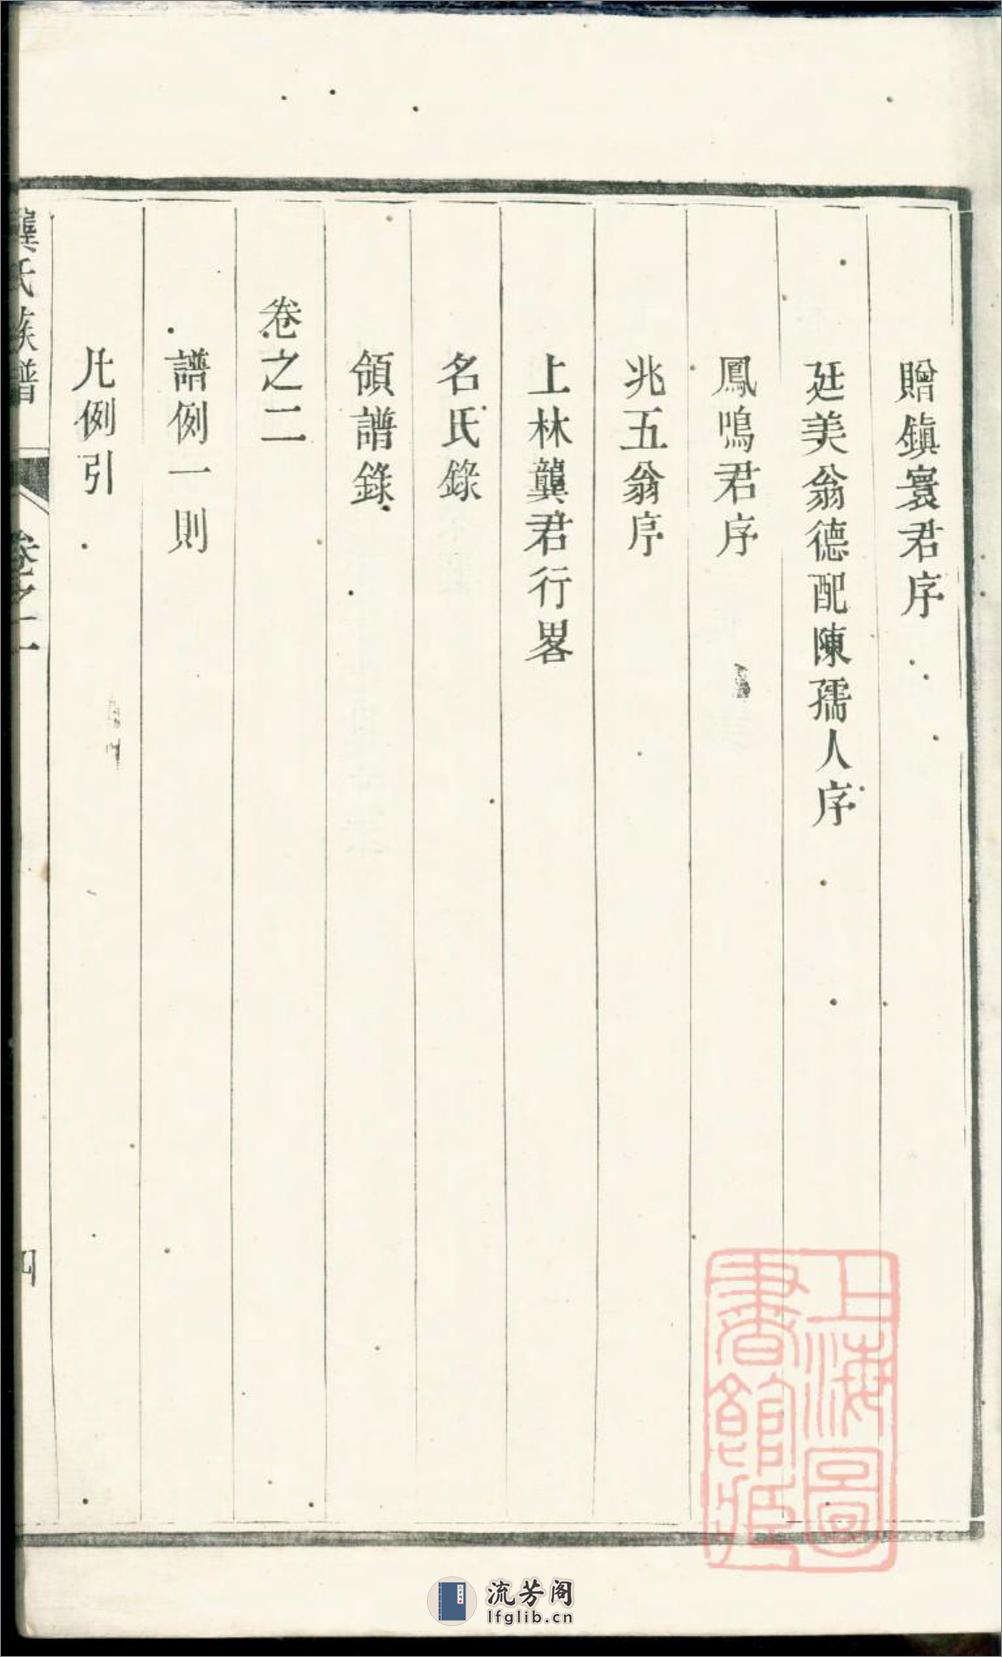 贈鎮寰君序
廷美翁德配陳孺人序
鳳鳴君序
兆五翁序
上林龔君行畧
名氏錄
領譜錄
卷之二
譜例一則
凡例引
龔氏族譜
卷之一
四
上海圖書館藏
流芳阁
lfglib.cn